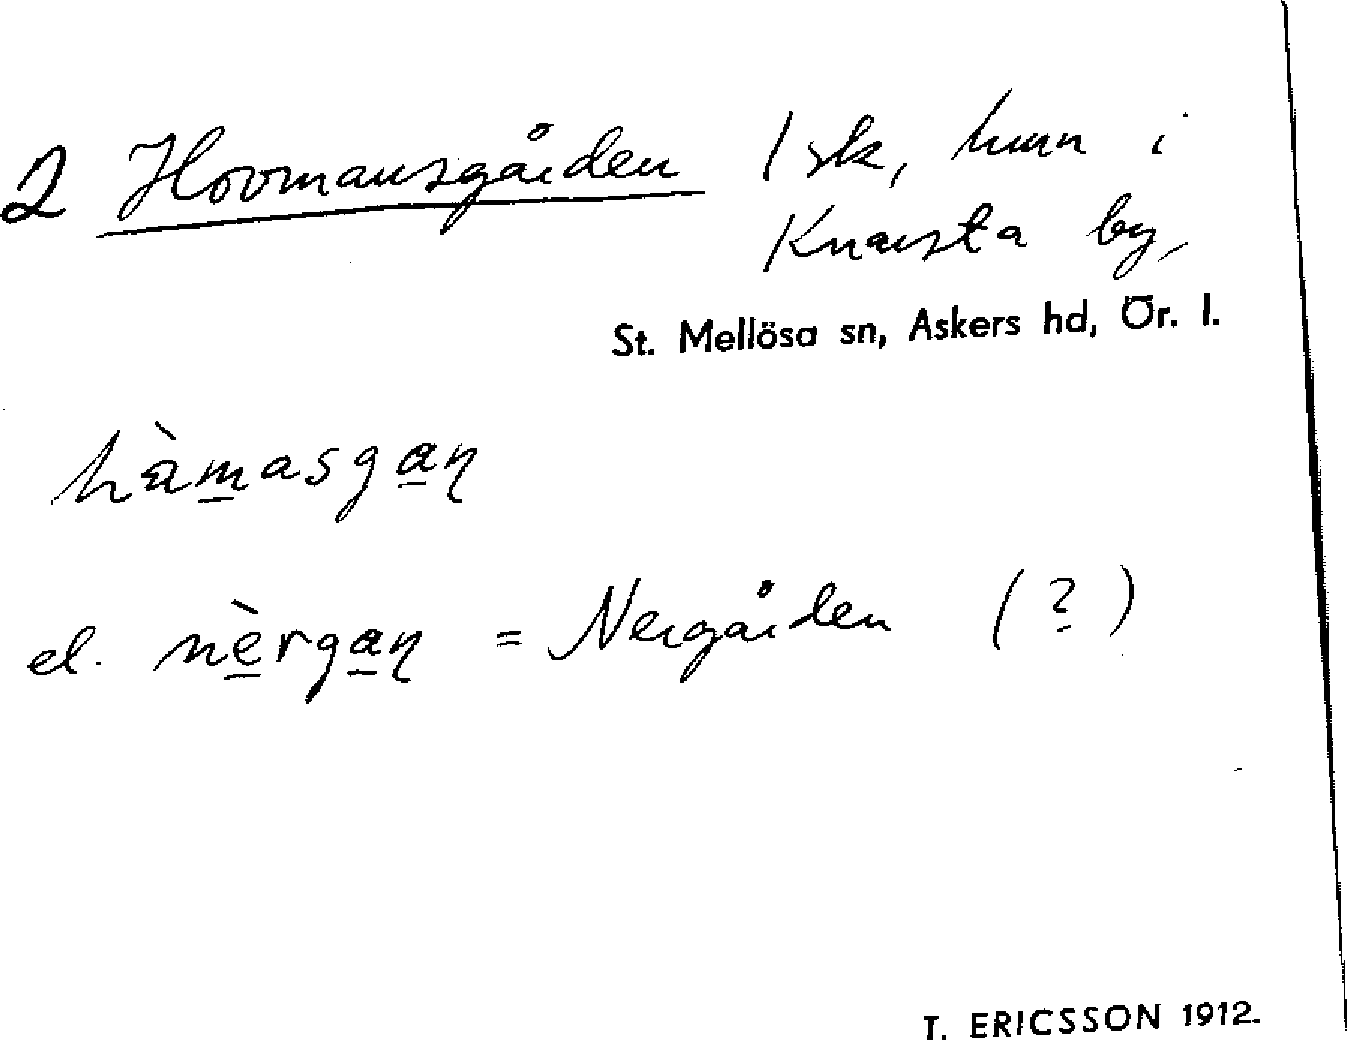 2 Hovmansgården 1 sk, hmn i
Knausta by,
St. Mellösa sn, Askers hd, Ör. l.
hàmasgaɳ
el. nèrgaɳ = Nergården (?)
T. ERICSSON 1912.